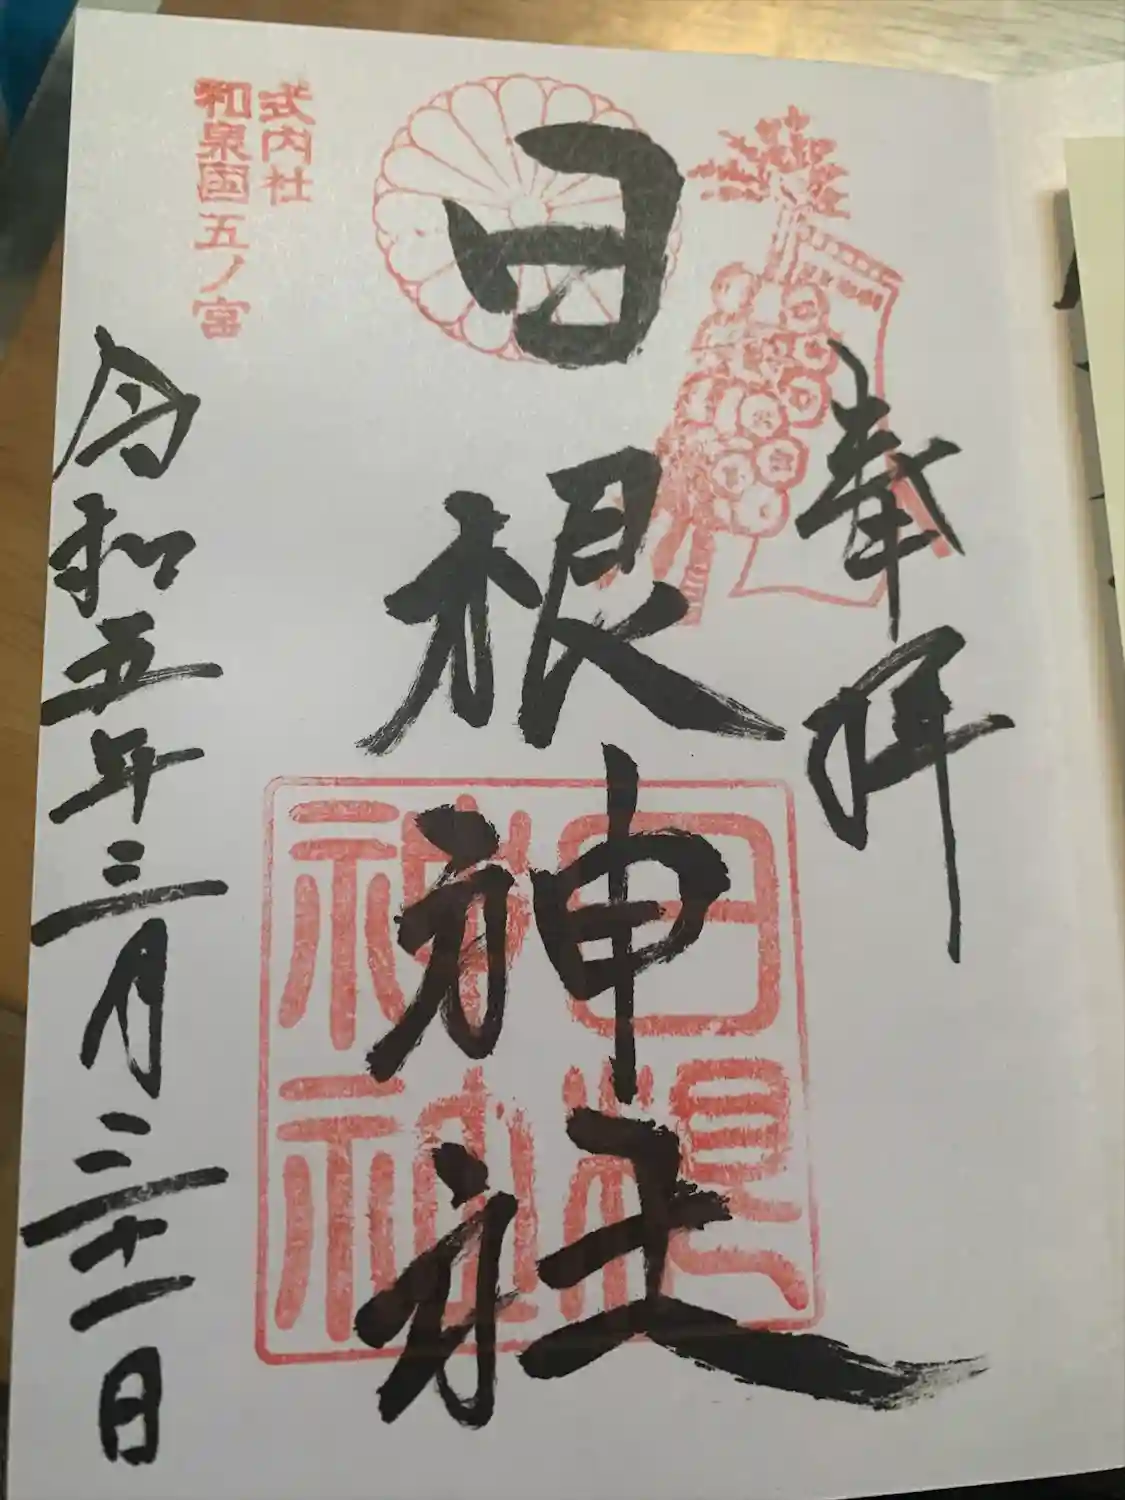 奉拝
日根神社
日根
神社
式内社
和泉國五ノ宮
令和五年三月三十一日